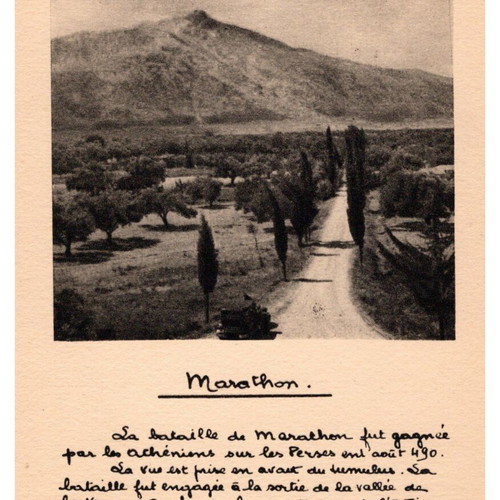 Marathon.
La bataille de Marathon fut gagnée
par les athéniens sur les Perses en août 490.
La vue est prise en avant du tumulus. La
bataille fut engagée à la sortie de la vallée de